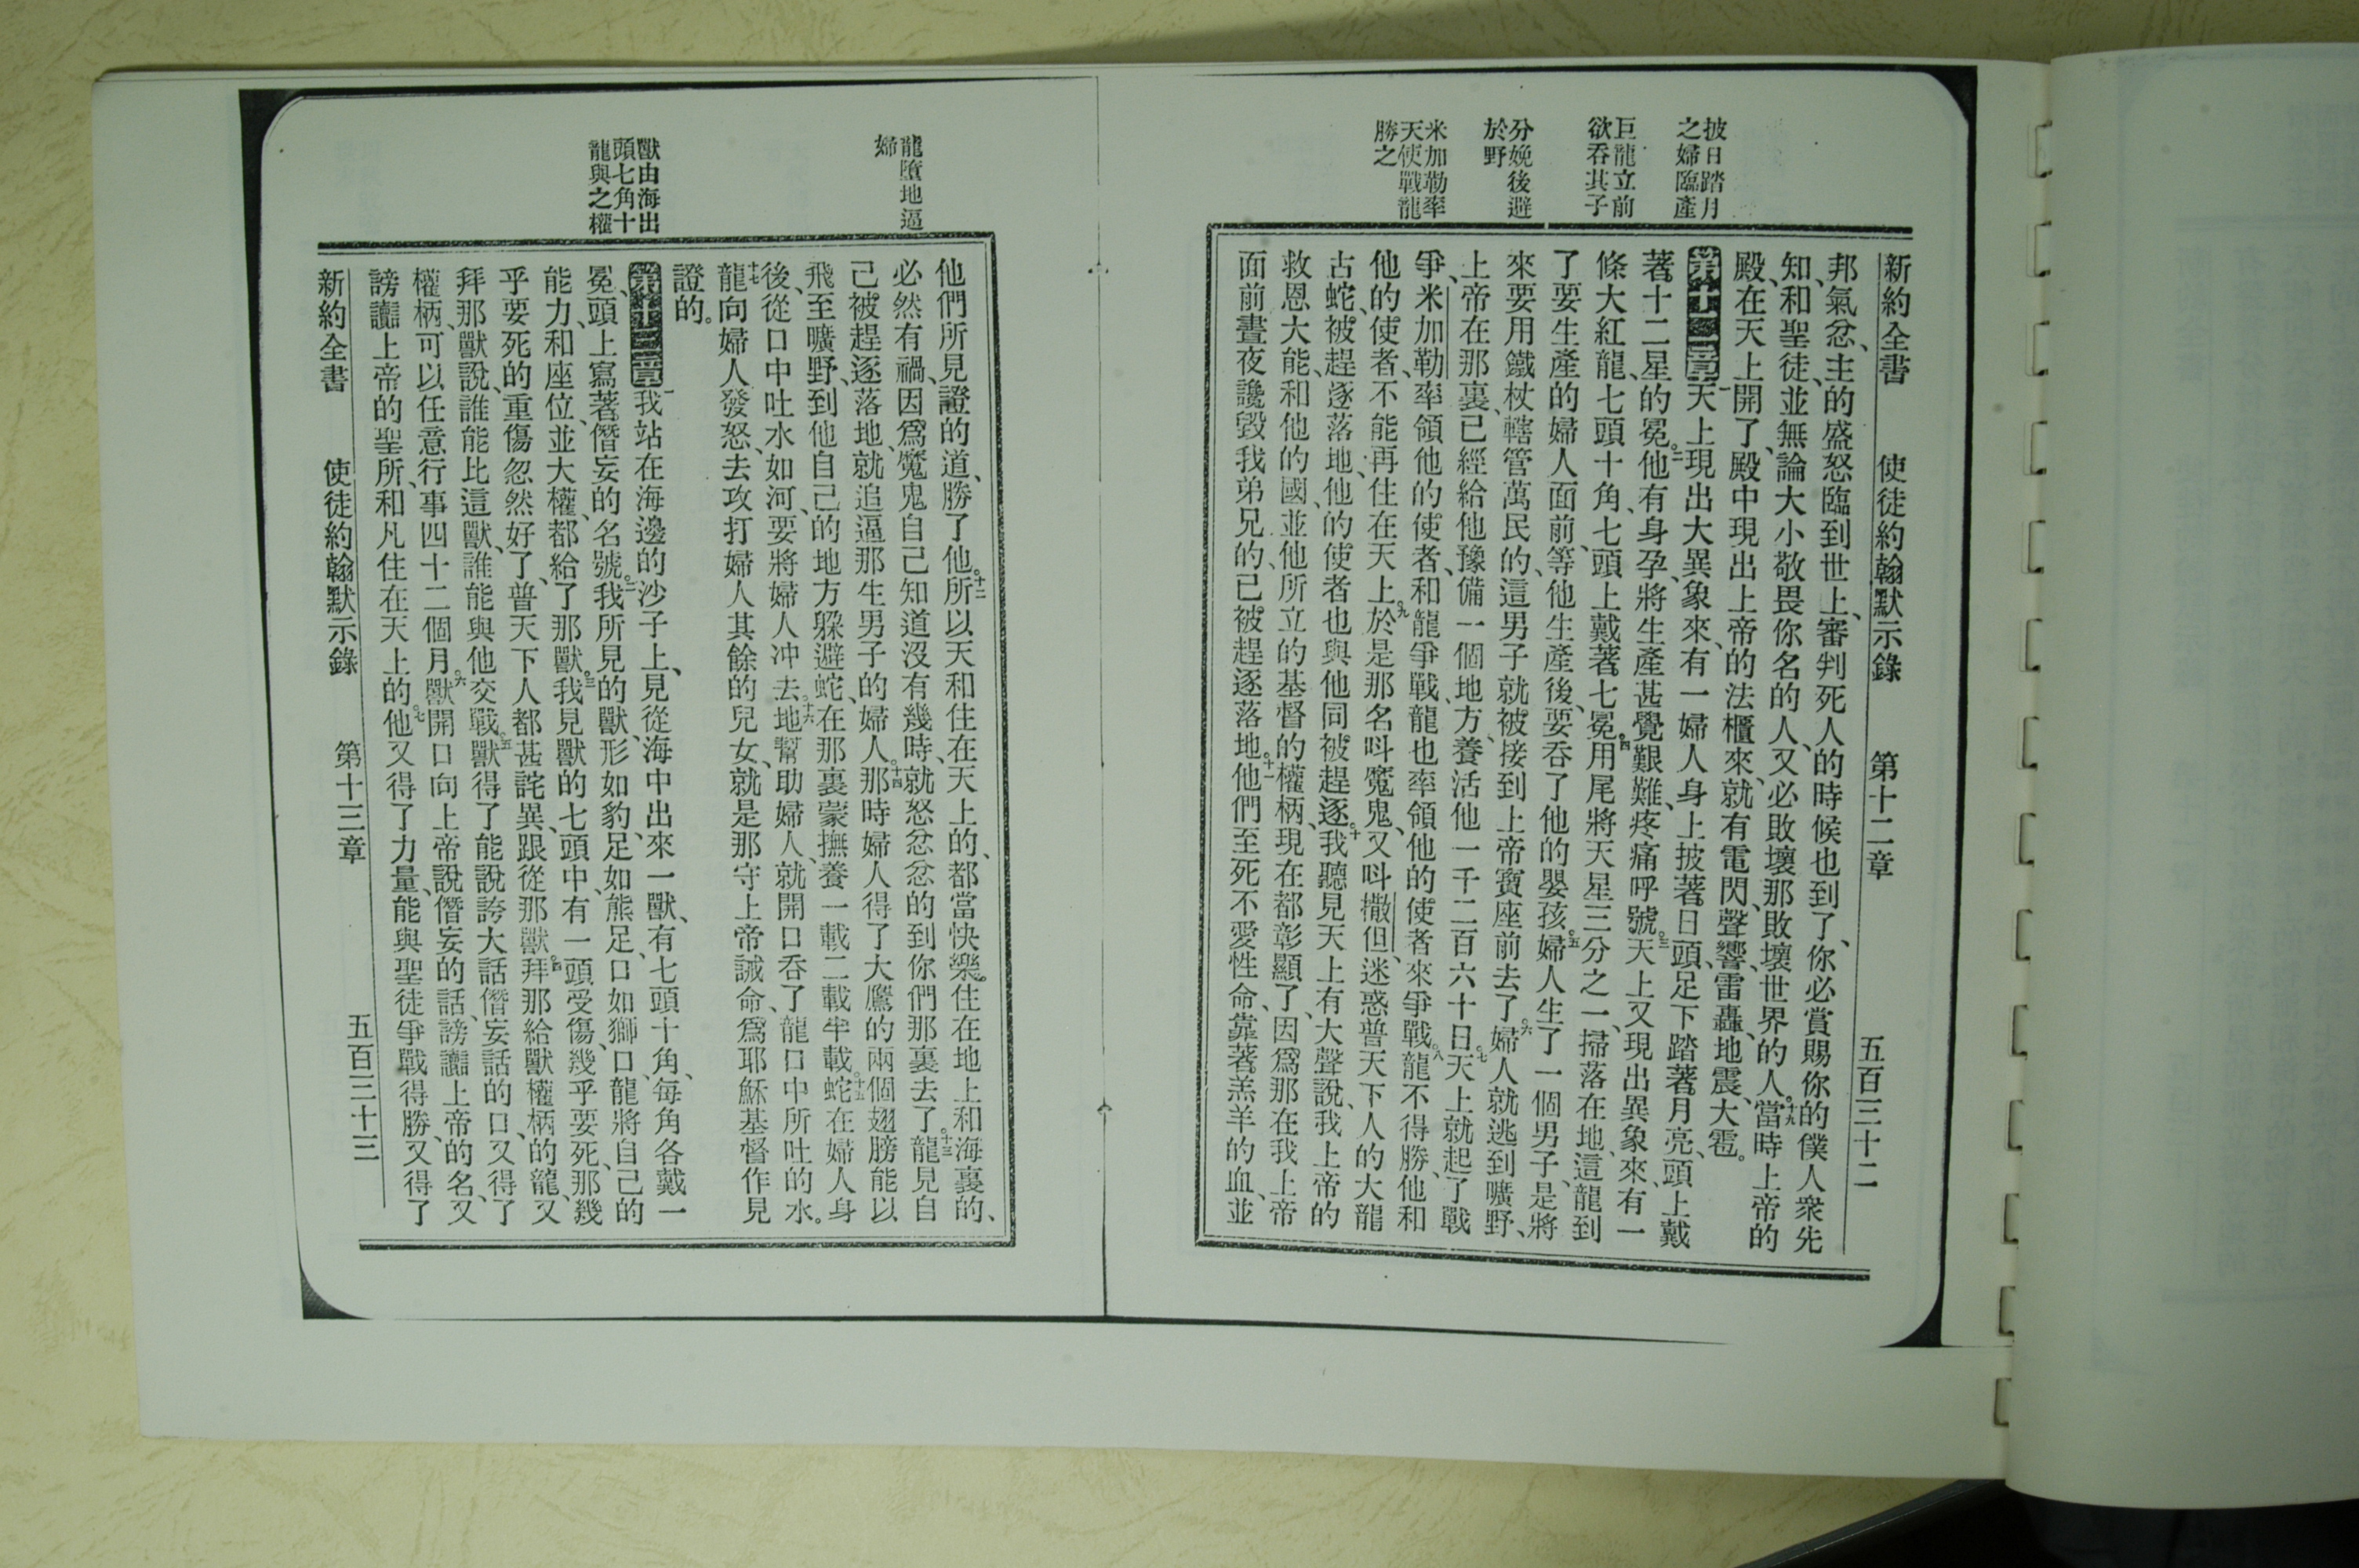 披日踏月
之婦臨產
巨龍立前
欲吞其子
分娩後避
於野
米加勒率
天使戰龍
勝之
新約全書 使徒約翰默示錄 第十二章 五百三十二
邦氣忿、主的盛怒臨到世上、審判死人的時候也到了、你必賞賜你的僕人衆先
知、和聖徒、並無論大小敬畏你名的人、又必敗壞那敗壞世界的人。十九當時上帝的
殿、在天上開了、殿中現出上帝的法櫃來、就有電閃、聲響、雷轟、地震、大雹。
第十二章一天上現出大異象來、有一婦人身上披著日頭、足下踏著月亮、頭上戴
著十二星的冕。二他有身孕、將生產甚覺艱難、疼痛呼號。三天上又現出異象來、有一
條大紅龍、七頭十角、七頭上戴著七冕。四用尾將天星三分之一、掃落在地、這龍到
了要生產的婦人面前、等他生產後、要吞了他的嬰孩。五婦人生了一個男子、是將
來要用鐵杖轄管萬民的、這男子就被接到上帝寶座前去了。六婦人就逃到曠野、
上帝在那裏、已經給他豫備一個地方、養活他一千二百六十日。七天上就起了戰
爭、米加勒、率領他的使者、和龍爭戰、龍也率領他的使者來爭戰。八龍不得勝、他和
他的使者、不能再住在天上。九於是那名呌魔鬼、又呌撒但、迷惑普天下人的大龍
古蛇、被趕、逐落地、他的使者也與他同被趕逐。十我聽見天上有大聲說、我上帝的
救恩大能、和他的國、並他所立的基督的權柄、現在都彰顯了、因爲那在我上帝
面前晝夜讒毀我弟兄的、已被趕逐落地。十一他們至死不愛性命、靠著羔羊的血、並
龍墮地逼
婦
獸由海出
頭七角十
龍與之權
他們所見證的道、勝了他。十二所以天和住在天上的、都當快樂。住在地上和海裏的、
必然有禍、因爲魔鬼自己知道沒有幾時、就怒忿忿的到你們那裏去了。十三龍見自
己被趕逐落地、就追逼那生男子的婦人。十四那時婦人得了大鷹的兩個翅膀能以
飛至曠野、到他自己的地方躱避蛇、在那裏蒙撫養一載二載半載。十五蛇在婦人身
後、從口中吐水、如河、要將婦人冲去。十六地幫助婦人、就開口吞了龍口中所吐的水。
十七龍向婦人發怒、去攻打婦人其餘的兒女、就是那守上帝誡命、爲耶穌基督作見
證的。
第十三章一我站在海邊的沙子上、見從海中出來一獸、有七頭十角、每角各戴一
冕、頭上寫著僭妄的名號。二我所見的獸、形如豹、足如熊足、口如獅口、龍將自己的
能力、和座位、並大權、都給了那獸。三我見獸的七頭中、有一頭受傷、幾乎要死、那幾
乎要死的重傷忽然好了、普天下人都甚詫異、跟從那獸。四拜那給獸權柄的龍、又
拜那獸說、誰能比這獸、誰能與他交戰。五獸得了能說誇大話僭妄話的口、又得了
權柄、可以任意行事四十二個月。六獸開口向上帝說僭妄的話、謗讟上帝的名、又
謗讟上帝的聖所、和凡住在天上的。七他又得了力量、能與聖徒爭戰得勝、又得了
新約全書 使徒約翰默示錄 第十三章 五百三十三